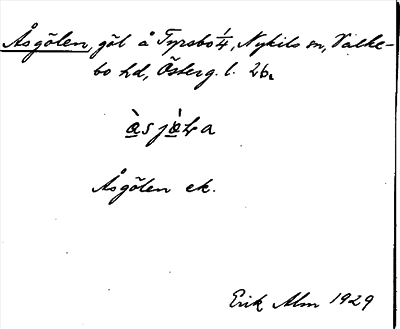 Åsgölen, göl å Tyrsbo 1/4, Nykils sn, Valke-
bo hd, Österg. l. 26.
Åsgölen ek.
Erik Alm 1929